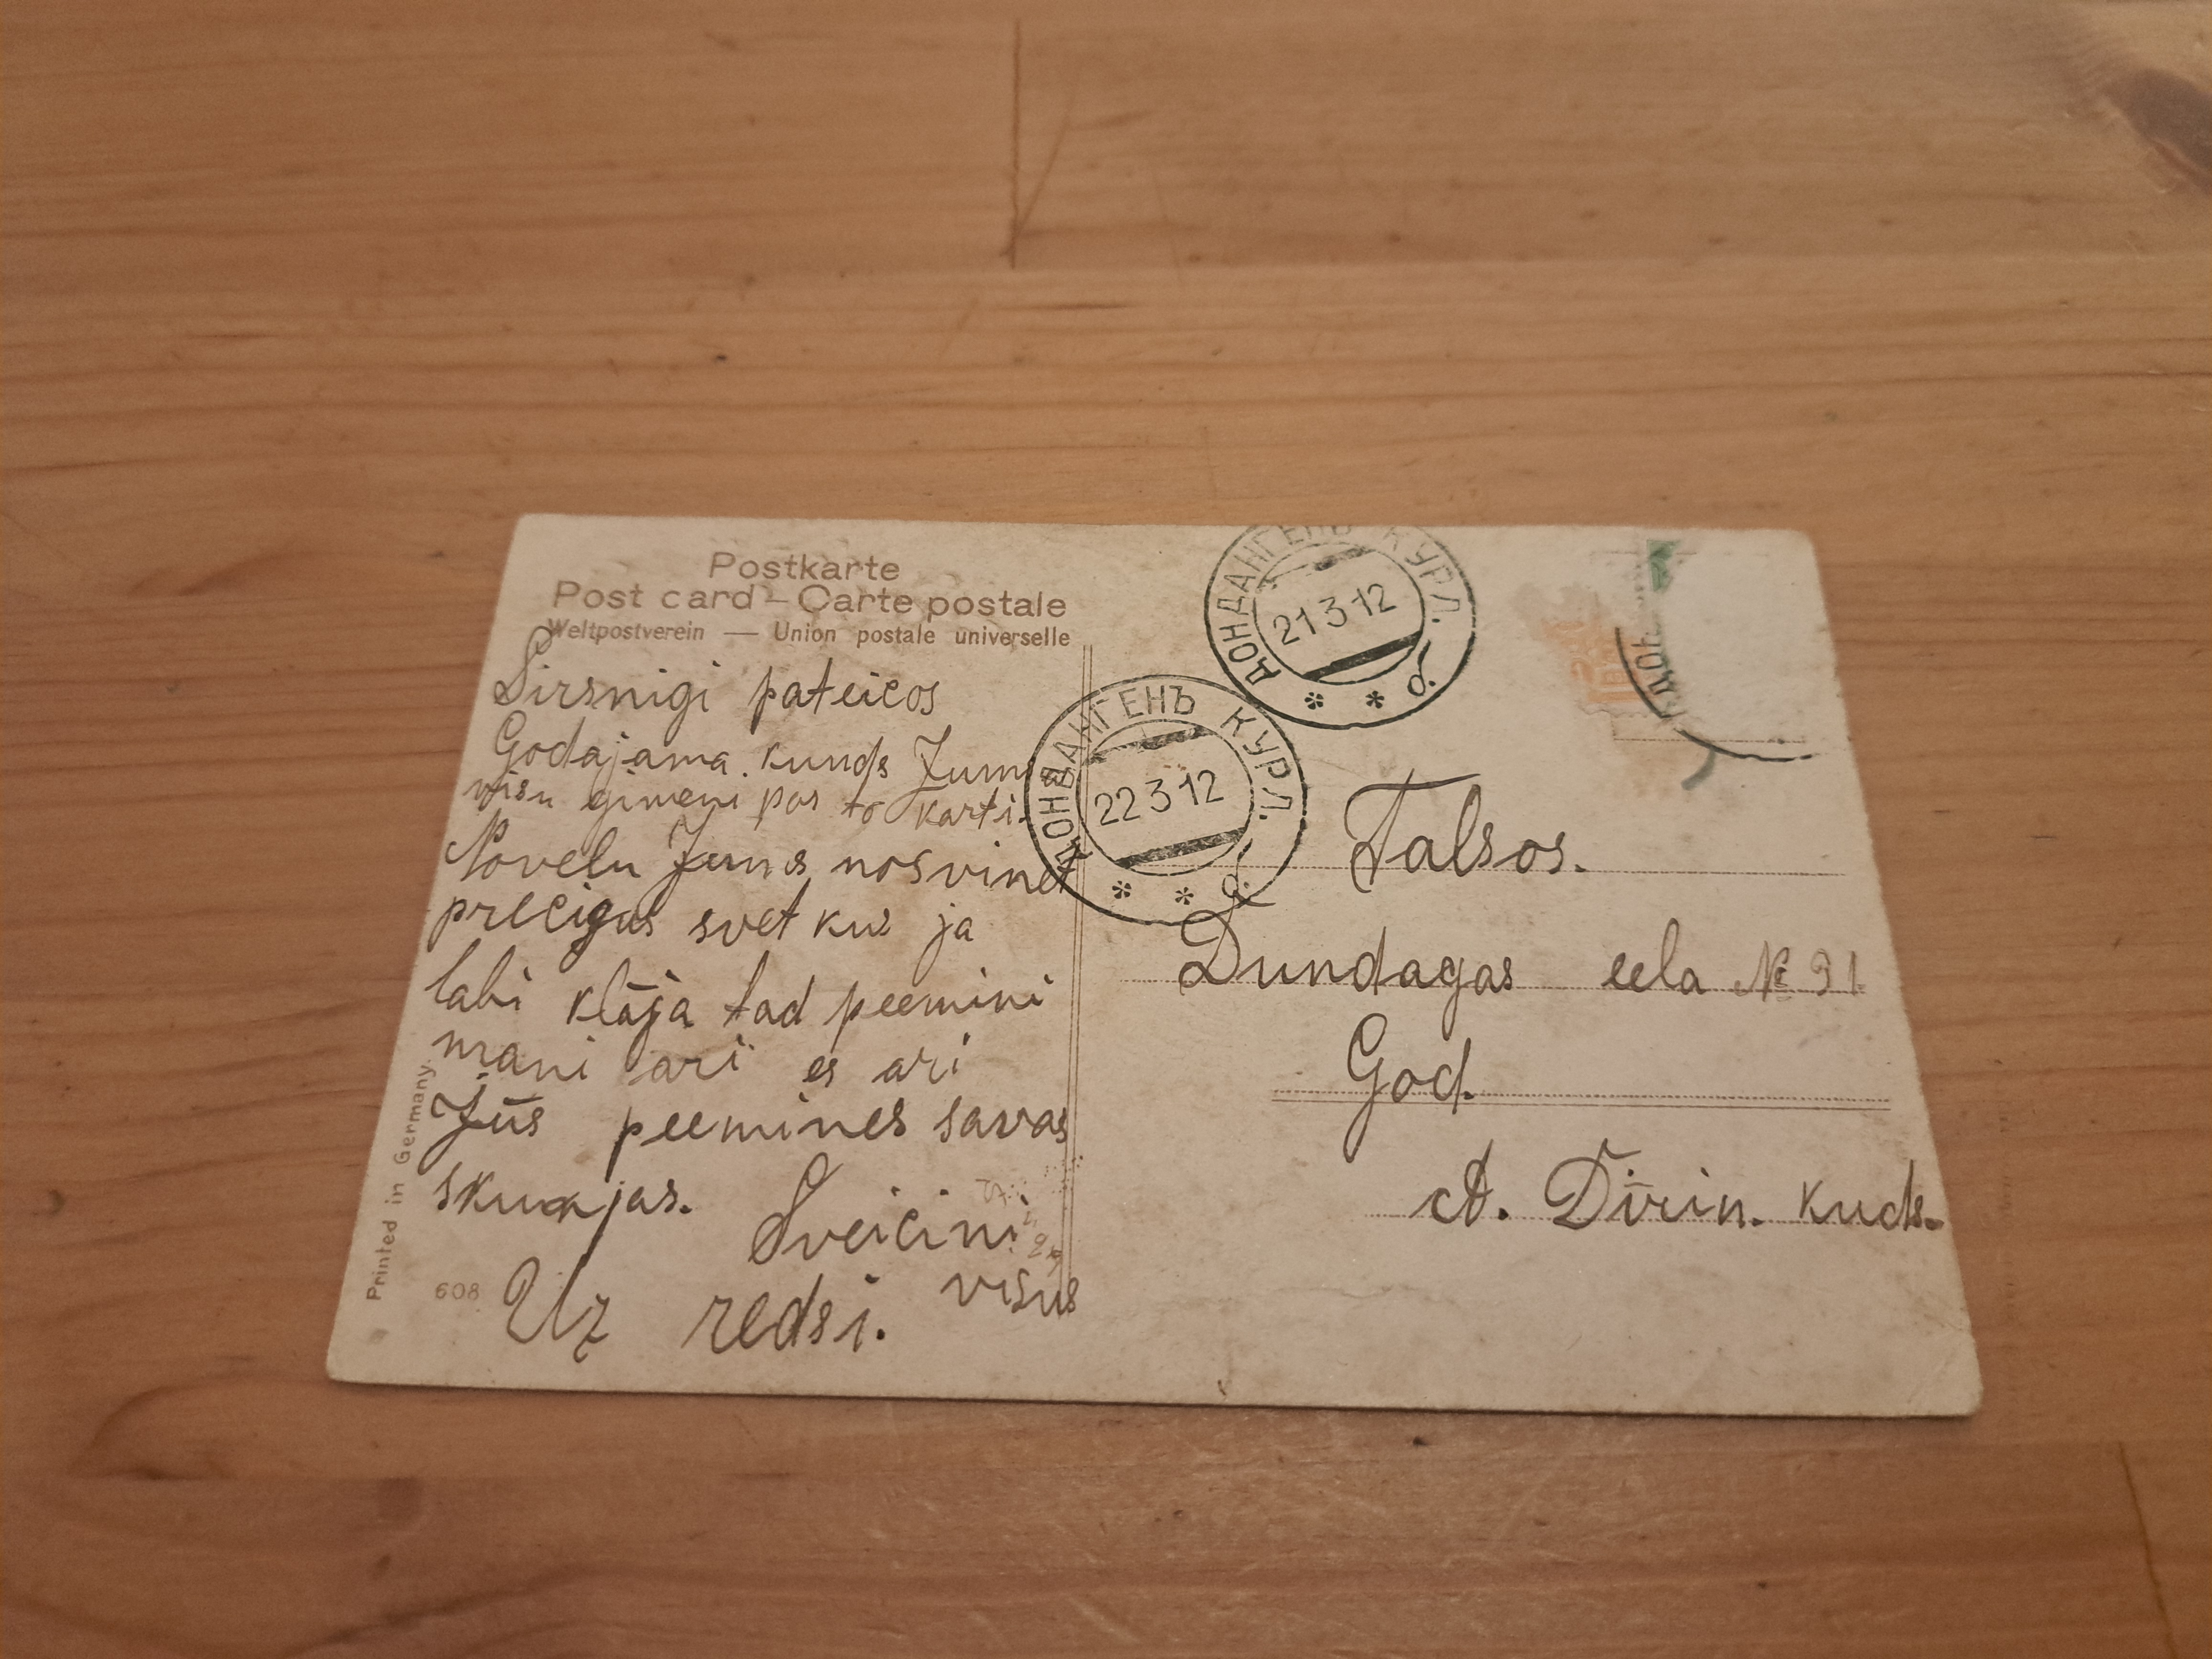 Postkarte
Post card – Carte postale
Weltpostverein — Union postale universelle
Sirsnigi pateicos
Godajama. kunds Jums
visu gimeni par to karti.
Novelu Jums nosvinet
precigus svetkus ja
labi klaja tad peemini
mani ari es ari
Jūs peemines savas
skumjas.
Sveicini
visus
Uz redsi.
Printed in Germany.
608
ДОНДАНГЕНЪ КУРЛ.
21 3 12
* * б.
ДОНДАНГЕНЪ КУРЛ.
22 3 12
* * б.
ДОН
Talsos.
Dundagas eela № 31.
God.
A. Dirin. kuds.